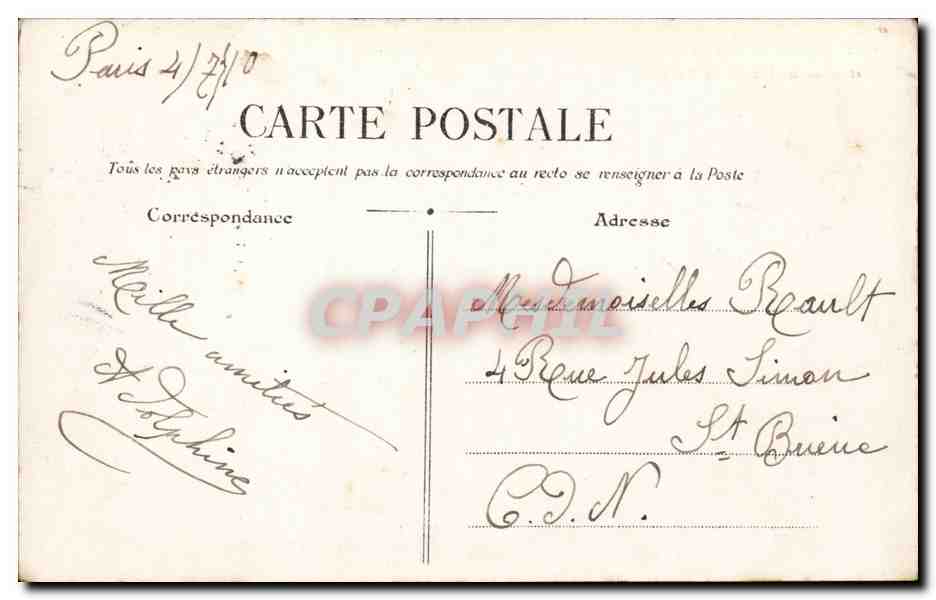 Paris 4/7/10
CARTE POSTALE
Tous les pays étrangers n'acceptent pas la correspondance au recto se renseigner à la Poste
Correspondance
Adresse
Meille amitiés
A Dolphine
CPAPHIL
Mesdemoiselles Rault
4 Rue Jules Simon
St Brieuc
C.D.N.